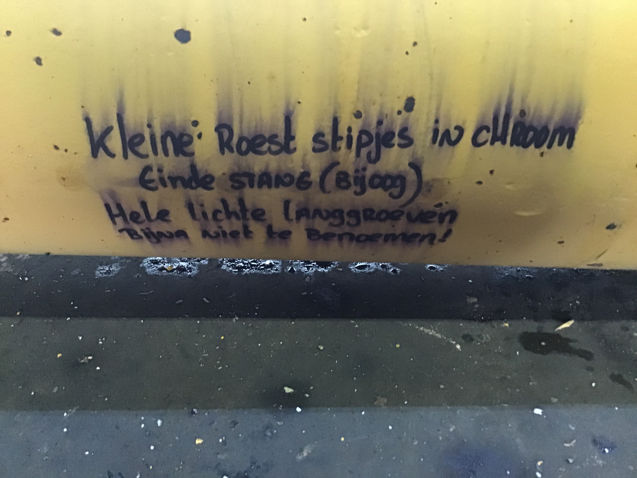 Kleine Roest stipjes in CHROOM
Einde STANG (Bijoog)
Hele lichte LANGGROEVEN
Bijna niet te Benoemen!